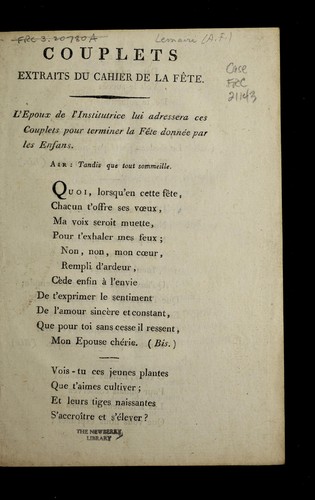 FRC 3. 20780A
Lemaire (A.F.)
COUPLETS
Case
FRC
21143
EXTRAITS DU CAHIER DE LA FÊTE.
L'Epoux de l'Institutrice lui adressera ces
Couplets pour terminer la Fête donnée par
les Enfans.
AIR : Tandis que tout sommeille.
QUOI, lorsqu'en cette fête,
Chacun t'offre ses vœux,
Ma voix seroit muette,
Pour t'exhaler mes feux ;
Non, non, mon cœur,
Rempli d'ardeur,
Cède enfin à l'envie
De t'exprimer le sentiment
De l'amour sincère et constant,
Que pour toi sans cesse il ressent,
Mon Epouse chérie. ( Bis. )
Vois-tu ces jeunes plantes
Que t'aimes cultiver ;
Et leurs tiges naissantes
S'accroître et s'élever ?
THE NEWBERRY
LIBRARY